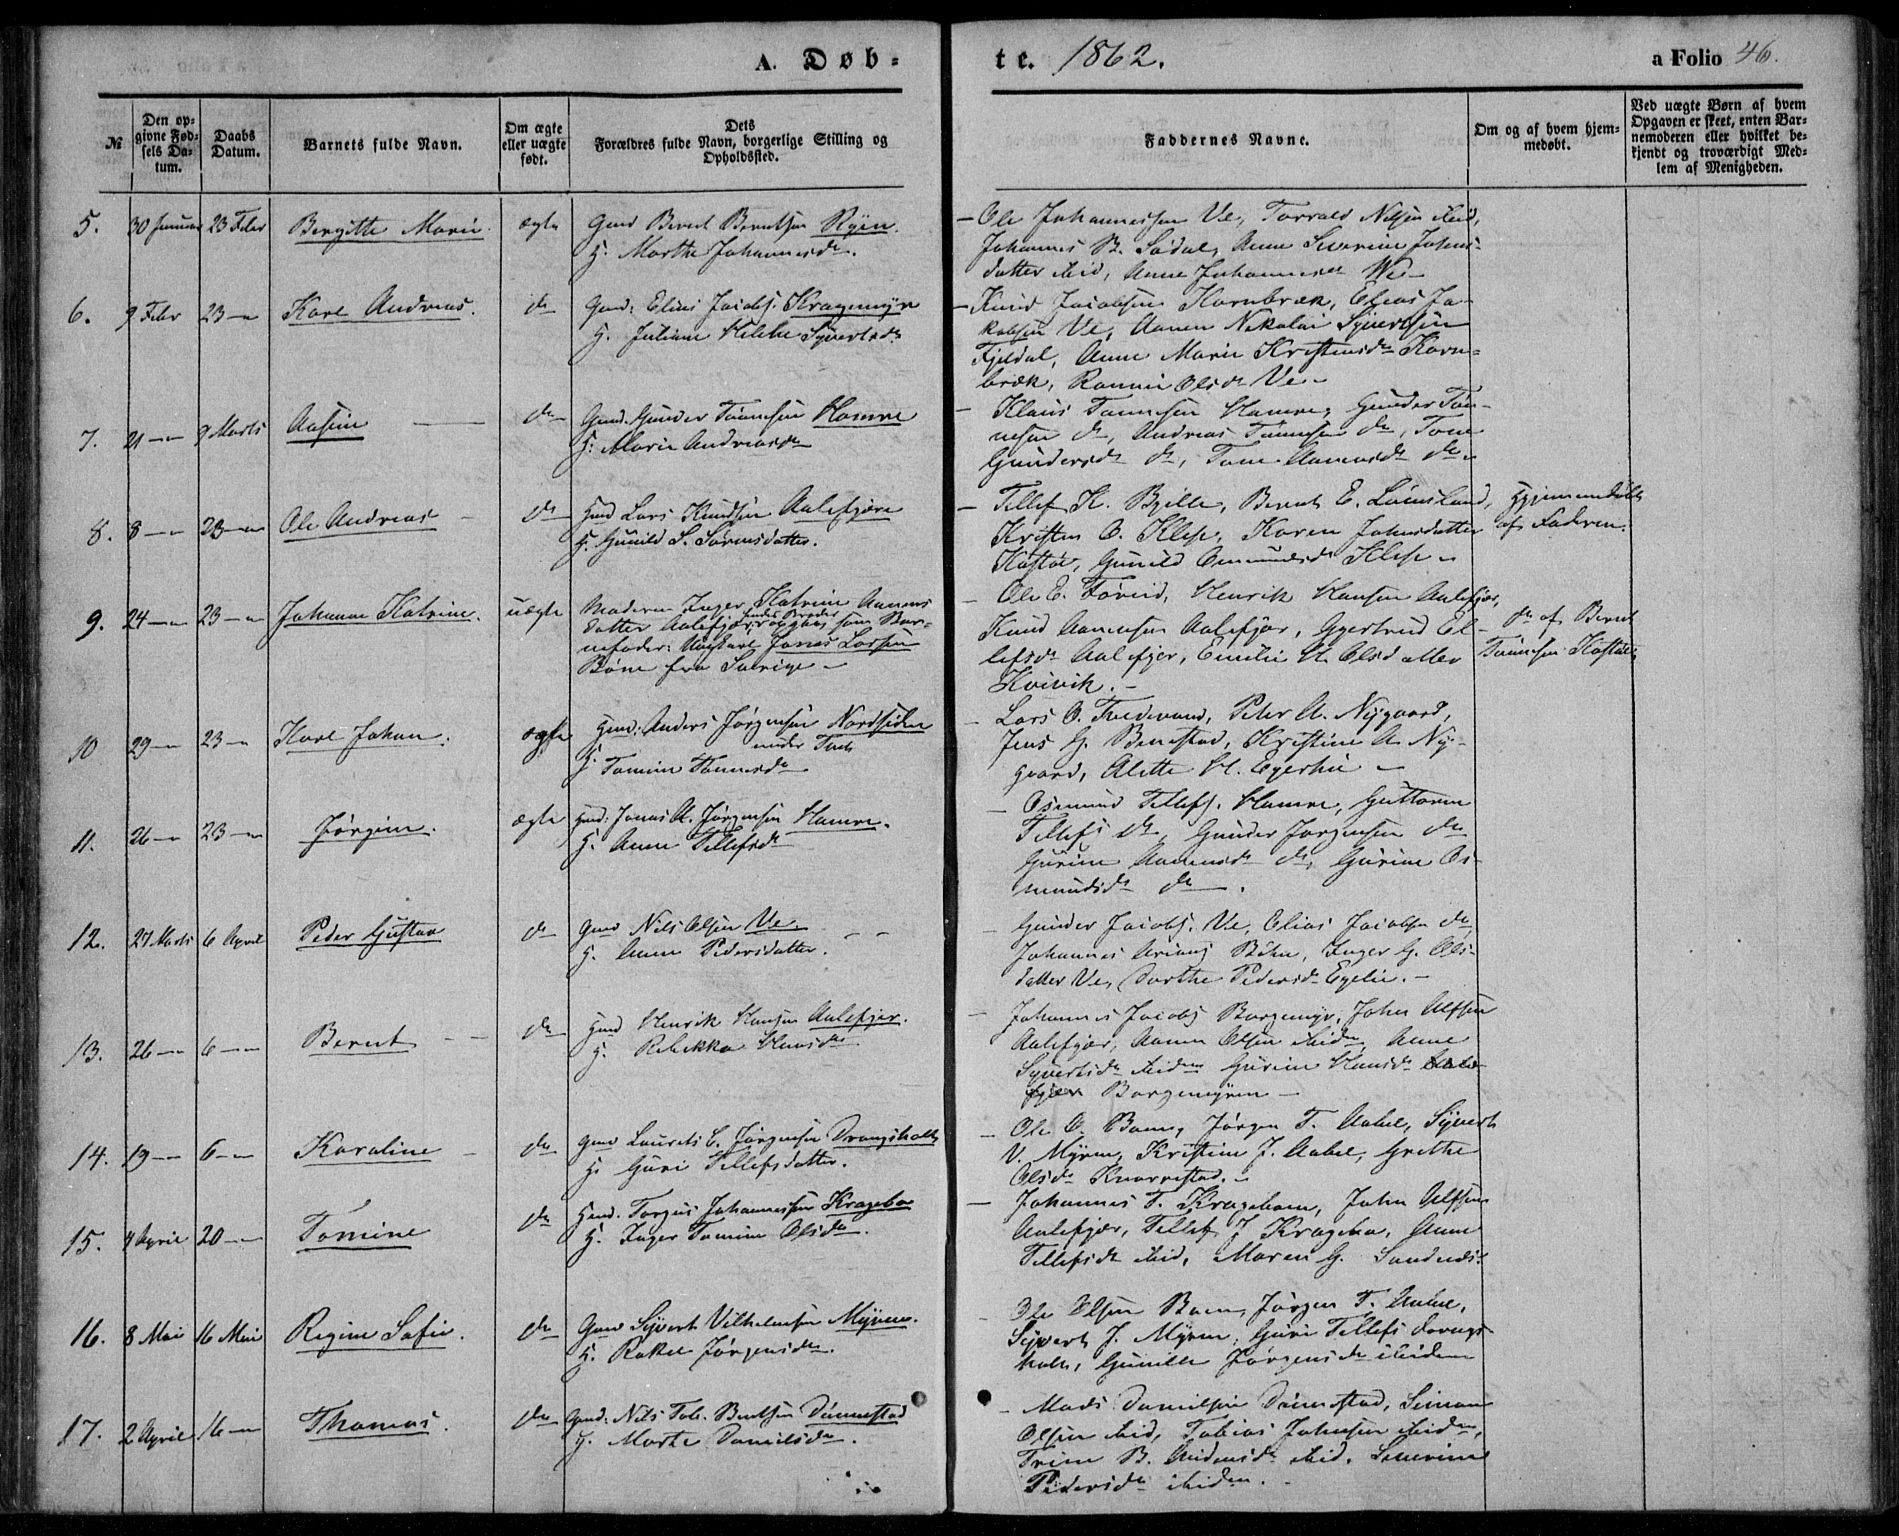 A. Døb-
te. 1862.
a Folio 46.
№
Den op-
givne Fød-
sels Da-
tum.
Daabs
Datum.
Barnets fulde Navn.
Om ægte
eller uægte
født.
Dets
Forældres fulde Navn, borgerlige Stilling og
Opholdssted.
Faddernes Navne.
Om og af hvem hjem-
medøbt.
Ved uægte Børn af hvem
Opgaven er skeet, enten Bar-
nemoderen eller hvilket be-
kjendt og troværdigt Med-
lem af Menigheden.
5. 30 Januar 23 Febr Birgitte Marie. ægte
Gmd Bernt Berntsen Ryen.
H. Marthe Johannesdr.
- Ole Johannessen Ve, Torvald Nilsen ibid,
Johannes B. Sødal, Anne Severine Johns-
datter ibid, Anne Johannesdr Ve -
6. 9 Febr 23 - Karl Andreas. do
Gmd: Elias Jacobs. Kragemyr
H. Juliane Helene Syvertsdr
- Knud Jacobsen Kornbræk, Elias Ja-
kobsen Ve, Aanen Nikolai Syvertsen
Fjeldal, Anne Marie Kristensdr Korn-
bræk, Ramni Olsdr Ve -
7. 21 - 9 Marts Aasine do
Gmd. Gunder Tønnesen Hamre
H: Marie Andreasdr
- Klaus Tønnesen Hamre, Gunder Tøn-
nesen do, Andreas Tønnesen do, Tone
Gundersdr do, Tone Aanensdr do -
8. 8 - 23 - Ole Andreas do
Hmd Lars Knudsen Aalefjære
H. Gunild S. Sørensdatter.
- Tellef K. Bjelle, Bernt E. Lømsland,
Kristen O. Klep, Karen Johnsdatter
Kostøl, Gunild Omundsdr Klep -
Hjemmedøbt
af Faderen.
9. 24 - 23 - Johanne Katrine. uægte
Moderen Inger Katrine Aanens
datter Aalefjær, opgav som Bar-
nefader: Ungkarl Jonas Larsen
Böne fra Sverige -
- Ole E. Foreid, Henrik Hansen Aalefjær,
Knud Aanensen Aalefjær, Gjertrud El-
lefsdr Aalefjær, Emilie H. Olsdatter
Kvivik. -
do af Bernt
Tønnesen Kostøl
10 29 - 23 - Karl Johan. ægte
Hmd: Anders Jørgensen Nordsiden
under Tveit
H. Tomine Tønnesdr
- Lars O. Tredevand, Peter A. Nygaard,
Jens G. Benestad, Kristine A. Ny-
gaard, Alette H. Egerhei -
11. 26 - 23 - Jørgine. ægte
Hmd: Jonas A. Jørgensen Hamre.
H. Anne Tellefsdr
- Osmund Tellefs. Hamre, Guttorm
Tellefs do, Gunder Jørgensen do
Gurine Aanensdr do, Gurine Os-
mundsdr do.
12. 27 Marts 6 April Peder Gustav do
Gmd Nils Olsen Ve.
H. Anne Pedersdatter.
- Gunder Jacobs. Ve, Elias Jacobsen do
Johannes Arians Bøhn, Inger G. Ols-
datter Ve, Dorthe Pedersdr Egelie. -
13. 26 - 6 - Bernt do
Hmd Henrik Hansen Aalefjær.
H. Rebekka Hansdr
- Johannes Jacobs Borgemyr, John Ulfsen
Aalefjær, Aanen Olsen ibidm, Anne
Syvertsdr ibidm Gurine Hansdr Aale-
fjær Borgemyren -
14. 19 - 6 - Karoline do
Gmd Laurits C. Jørgensen Drangsholt
H. Guri Tellefsdatter.
- Ole O. Boen, Jørgen T. Aabel, Syvert
V. Myren, Kristine J. Aabel, Grethe
Olsdr Knarrestad. -
15. 4 April 20 - Tomine do
Hmd. Torgius Johannessen Kragebo
H. Inger Tomine Olsdr.
- Johannes T. Krageboen, John Ulfsen
Aalefjær, Tellef J. Kragebo, Anne
Tellefsdr ibid, Maren G.
16. 8 Mai 16 Mai Regine Sofie. do
Gmd Syvert Vilhelmsen Myren.
H. Rakel Jørgensdr.
Ole Olsen Boen, Jørgen T. Aabel,
Syvert J. Myren, Guri Tellefs Drangs-
holt, Gunille Jørgensdr ibidem
17. 2 April 16 - Thomas. do
Gmd. Nils Tob. Bentsen Dønnestad
H. Marte Danielsdr.
- Mads Danielsen Dønnestad, Simon
Olsen ibid, Tobias Johnsen ibidm,
Trine B. ibid, Severine
Pedersdr ibidm.